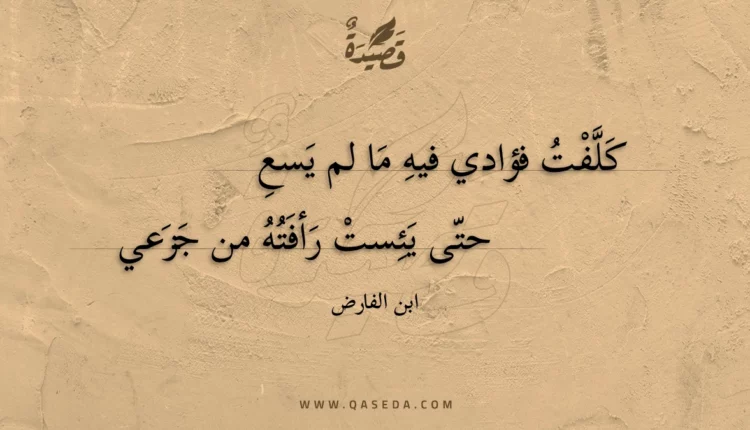 قَصِيْدَةٌ
كَلَّفْتُ فؤادي فيهِ مَا لم يَسعِ
حتّى يَئِستْ رَأفَتُهُ من جَزَعي
ابن الفارض
WWW.QASEDA.COM